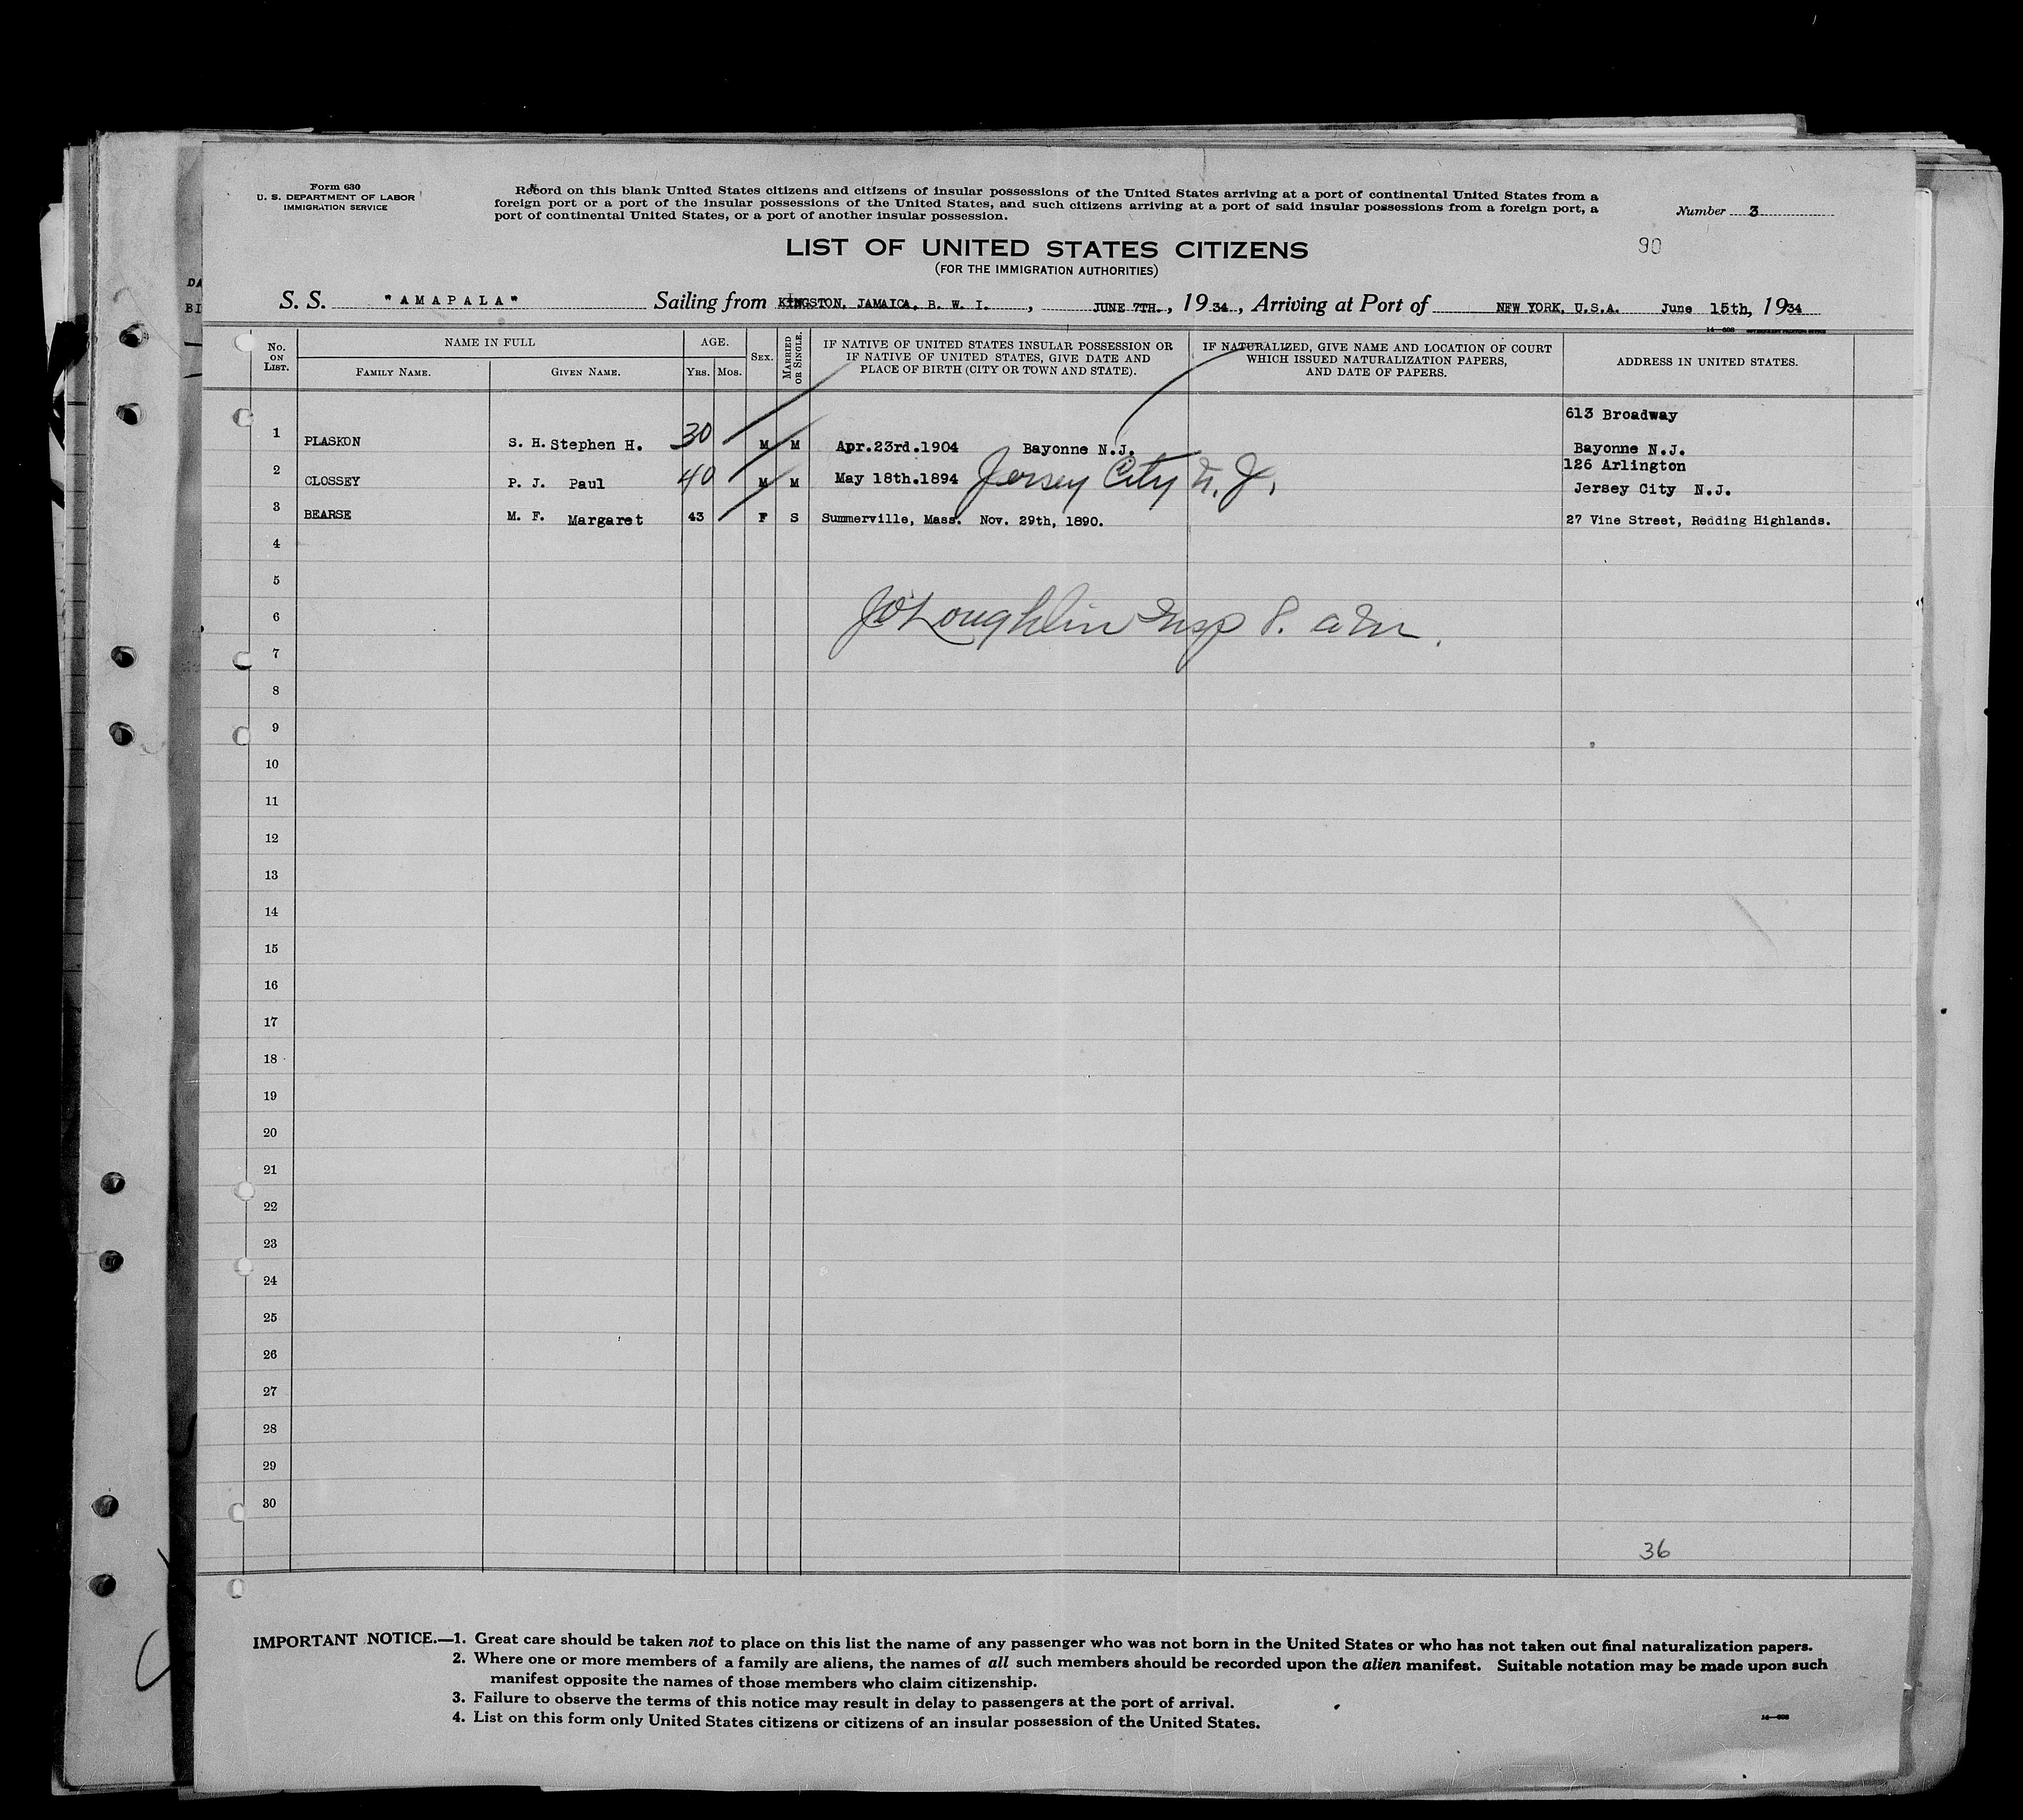 Form 630
U. S. DEPARTMENT OF LABOR
IMMIGRATION SERVICE
Record on this blank United States citizens and citizens of insular possessions of the United States arriving at a port of continental United States from a
foreign port or a port of the insular possessions of the United States, and such citizens arriving at a port of said insular possessions from a foreign port, a
port of continental United States, or a port of another insular possession.
Number 3
90
LIST OF UNITED STATES CITIZENS
(FOR THE IMMIGRATION AUTHORITIES)
S. S. "AMAPALA" Sailing from KINGSTON, JAMAICA, B. W. I. , JUNE 7TH. , 19 34 , Arriving at Port of NEW YORK, U.S.A. June 15th, 1934
DA
BI
No. ON LIST. NAME IN FULL AGE. SEX. MARRIED OR SINGLE. IF NATIVE OF UNITED STATES INSULAR POSSESSION OR IF NATIVE OF UNITED STATES, GIVE DATE AND PLACE OF BIRTH (CITY OR TOWN AND STATE). IF NATURALIZED, GIVE NAME AND LOCATION OF COURT WHICH ISSUED NATURALIZATION PAPERS, AND DATE OF PAPERS. ADDRESS IN UNITED STATES.
FAMILY NAME. GIVEN NAME. YRS. MOS.
613 Broadway
1 PLASKON S. H. Stephen H. 30 M M Apr.23rd.1904 Bayonne N.J. Bayonne N.J.
126 Arlington
2 CLOSSEY P. J. Paul 40 M M May 18th.1894 Jersey City N.J. Jersey City N.J.
3 BEARSE M. F. Margaret 43 F S Summerville, Mass. Nov. 29th, 1890. 27 Vine Street, Redding Highlands.
4
5
6 JO'Loughlin Insp
7
8
9
10
11
12
13
14
15
16
17
18
19
20
21
22
23
24
25
26
27
28
29
30
36
IMPORTANT NOTICE.—1. Great care should be taken not to place on this list the name of any passenger who was not born in the United States or who has not taken out final naturalization papers.
2. Where one or more members of a family are aliens, the names of all such members should be recorded upon the alien manifest. Suitable notation may be made upon such
manifest opposite the names of those members who claim citizenship.
3. Failure to observe the terms of this notice may result in delay to passengers at the port of arrival.
4. List on this form only United States citizens or citizens of an insular possession of the United States.